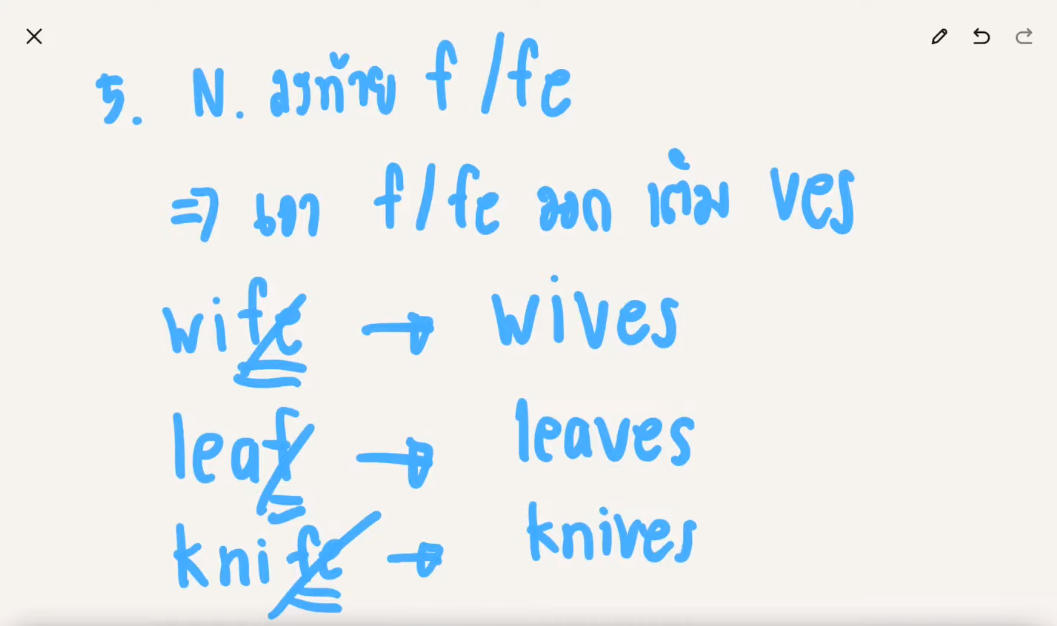 5. N. ลงท้าย f/fe
⇒ เอา f/fe ออก เติม ves
wife → wives
leaf → leaves
knife → knives